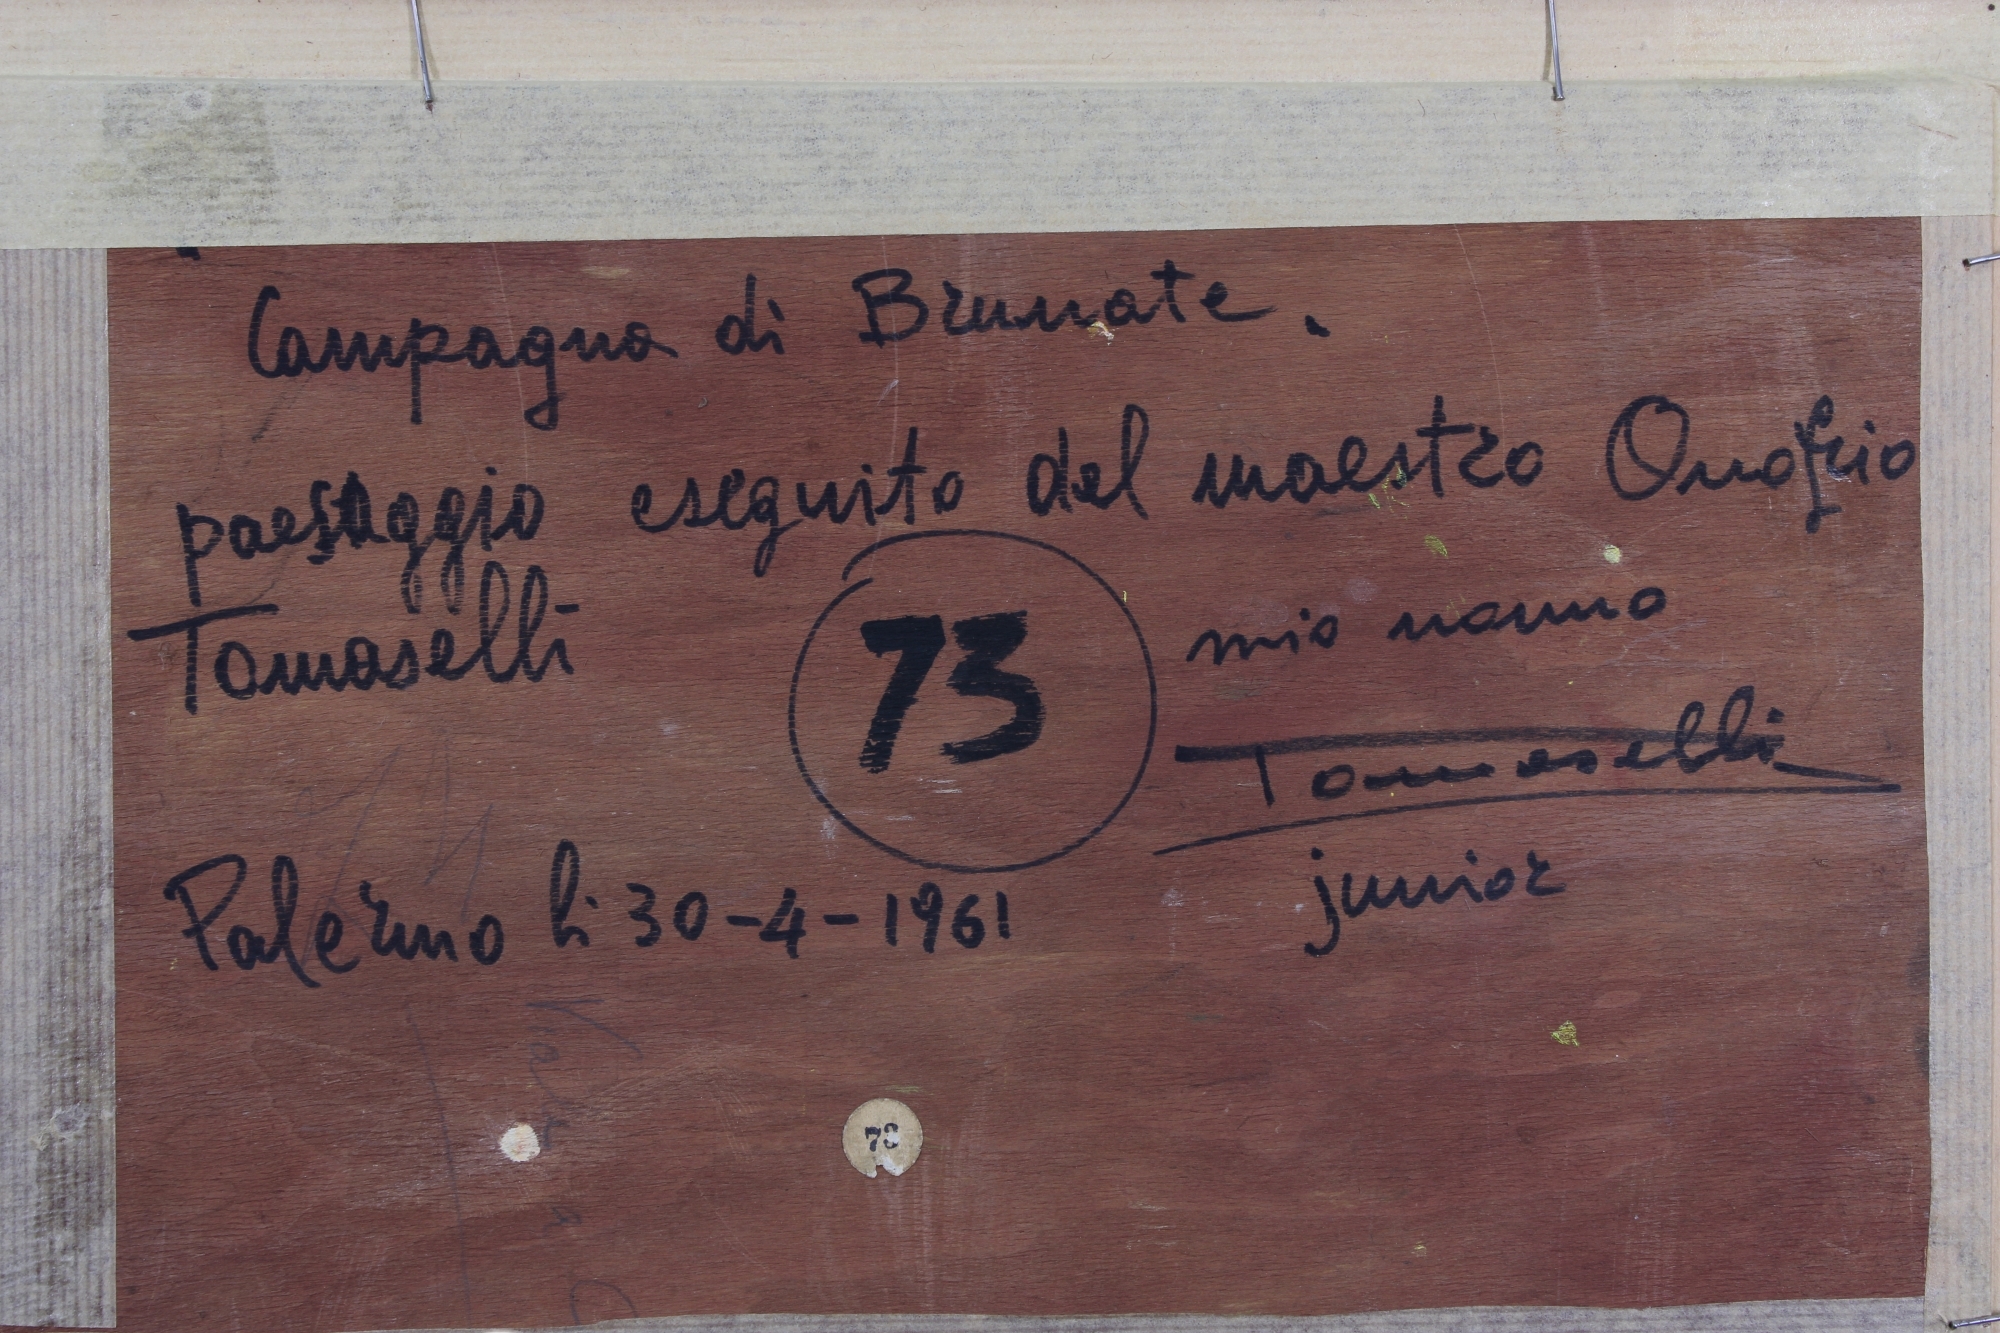 Campagna di Brunate.
paesaggio eseguito dal maestro Onofrio
Tomaselli
73
mio nonno
Tomaselli
junior
Palermo li 30-4-1961
73